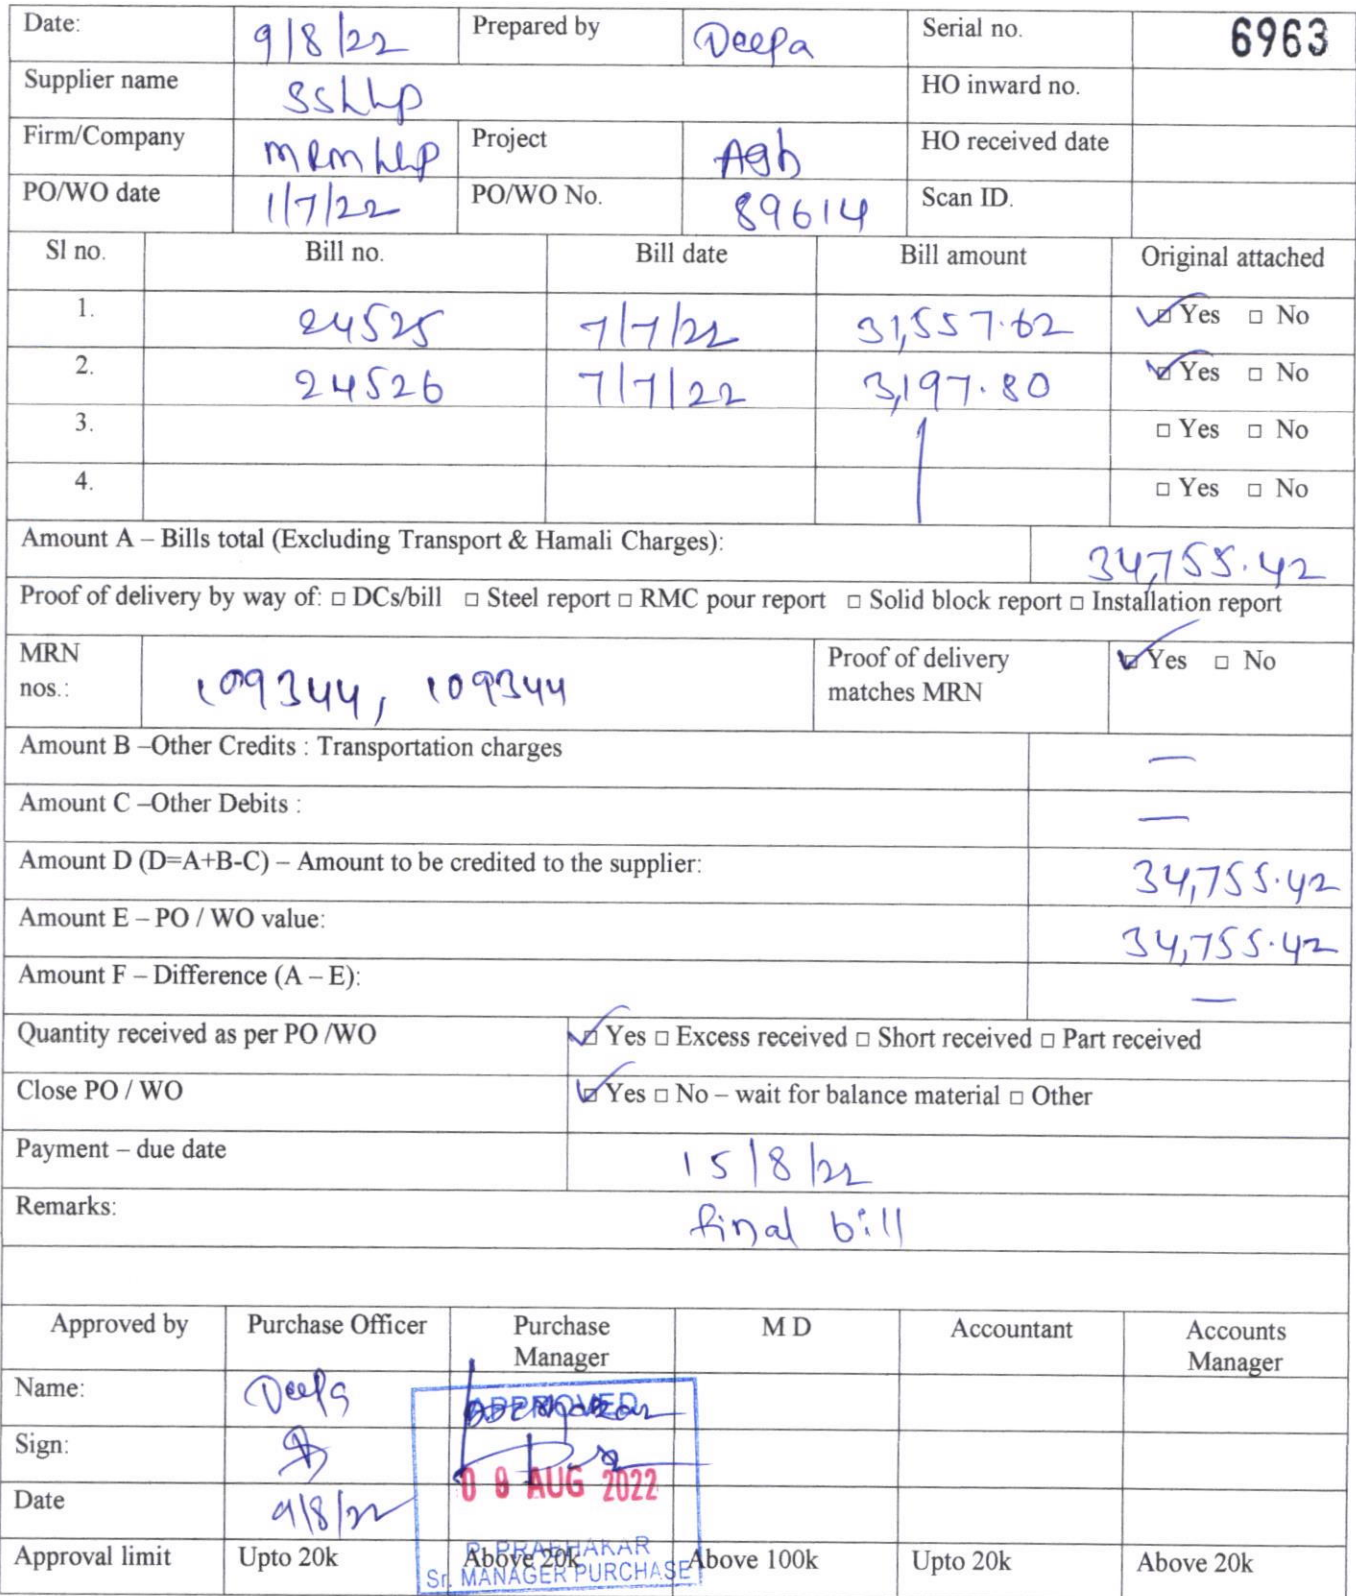 Date: 9/8/22 Prepared by Deepa Serial no. 6963
Supplier name SSLLP HO inward no.
Firm/Company MRM LLP Project AGh HO received date
PO/WO date 1/7/22 PO/WO No. 89614 Scan ID.
Sl no. Bill no. Bill date Bill amount Original attached
1. 24525 7/7/22 31,557.62 ☑ Yes □ No
2. 24526 7/7/22 3,197.80 ☑ Yes □ No
3. □ Yes □ No
4. □ Yes □ No
Amount A – Bills total (Excluding Transport & Hamali Charges): 34,755.42
Proof of delivery by way of: □ DCs/bill □ Steel report □ RMC pour report □ Solid block report □ Installation report
MRN nos.: 109344, 109344 Proof of delivery matches MRN ☑ Yes □ No
Amount B –Other Credits : Transportation charges —
Amount C –Other Debits : —
Amount D (D=A+B-C) – Amount to be credited to the supplier: 34,755.42
Amount E – PO / WO value: 34,755.42
Amount F – Difference (A – E): —
Quantity received as per PO /WO ☑ Yes □ Excess received □ Short received □ Part received
Close PO / WO ☑ Yes □ No – wait for balance material □ Other
Payment – due date 15/8/22
Remarks: final bill
Approved by Purchase Officer Purchase Manager M D Accountant Accounts Manager
Name: Deepa APPROVED
Sign:
Date 9/8/22 09 AUG 2022
P. PRABHAKAR
Approval limit Upto 20k Above 20k Above 100k Upto 20k Above 20k
Sr. MANAGER PURCHASE